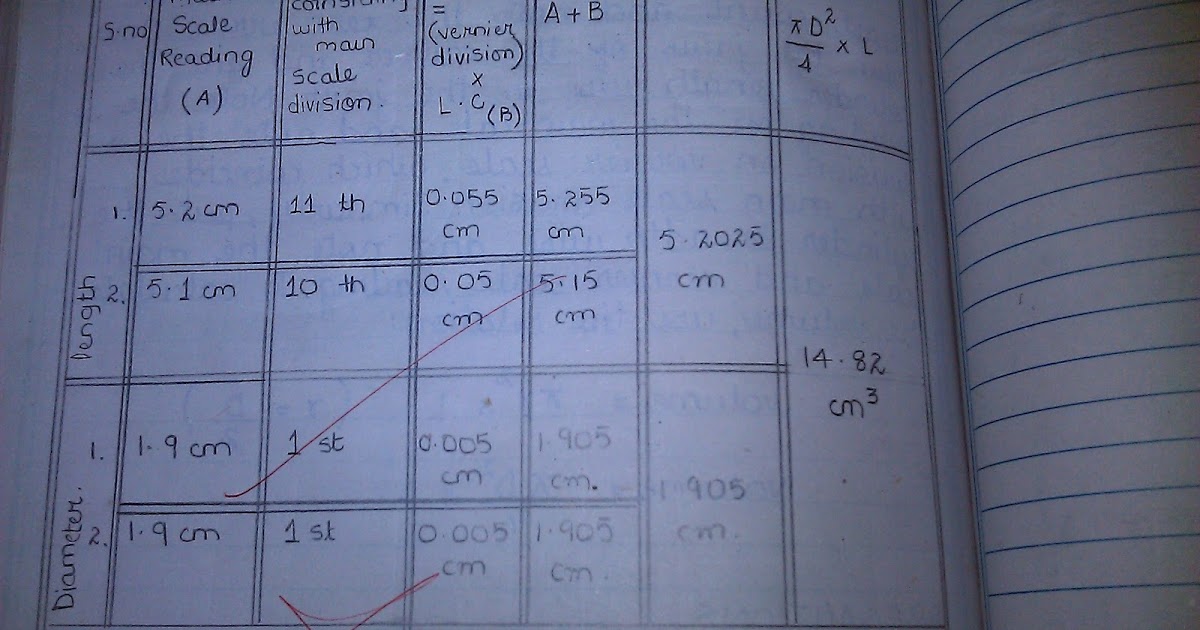 S.no
Scale
Reading
(A)
with
main
scale
division.
=
(vernier
division)
x
L.C (B)
A + B
πD²/4 x L
Length
1.
5.2 cm
11 th
0.055
cm
5.255
cm
2.
5.1 cm
10 th
0.05
cm
5.15
cm
5.2025
cm
14.82
cm³
Diameter.
1.
1.9 cm
1 st
0.005
cm
1.905
cm.
2.
1.9 cm
1 st
0.005
cm
1.905
cm.
1.905
cm.